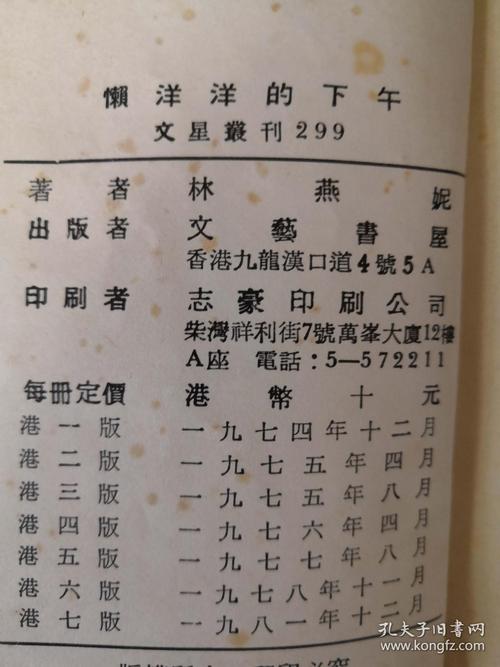 懶洋洋的下午
文星叢刊299
著者 林燕妮
出版者 文藝書屋
香港九龍漢口道4號5A
印刷者 志豪印刷公司
柴灣祥利街7號萬峯大廈12樓
A座 電話:5—572211
每冊定價 港幣十元
港一版 一九七四年十二月
港二版 一九七五年四月
港三版 一九七五年八月
港四版 一九七六年四月
港五版 一九七七年八月
港六版 一九七八年十一月
港七版 一九八一年十二月
孔夫子旧书网
www.kongfz.com